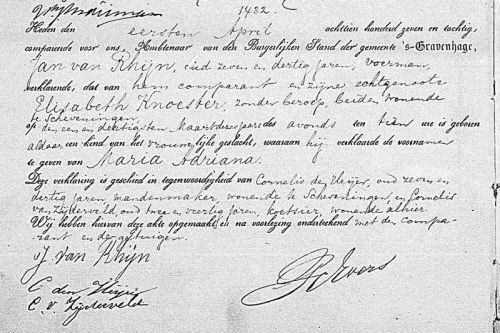 1432.
Heden den eersten April achttien honderd zeven en tachtig,
compareerde voor ons, Ambtenaar van den Burgerlijken Stand der gemeente 's-Gravenhage,
Jan van Rhijn, oud zeven en dertig jaren, voerman,
verklarende, dat van hem comparant en zijne echtgenoote
Elisabeth Knoester, zonder beroep, beiden wonende
te Scheveningen,
op den een en dertigsten Maart dezes jaars des avonds ten tien ure is geboren
aldaar een kind van het vrouwelijke geslacht, waaraan hij verklaarde de voornamen
te geven van Maria Adriana.
Deze verklaring is geschied in tegenwoordigheid van Cornelis den Heijer, oud zeven en
dertig jaren, mandenmaker, wonende te Scheveningen, en Cornelis
van Zijderveld, oud twee en veertig jaren, koetsier, wonende alhier.
Wij hebben hiervan deze akte opgemaakt, en na voorlezing onderteekend met de compa-
rant en de getuigen.
J. van Rhijn
C den Heijer
C. v. Zijderveld
Evers